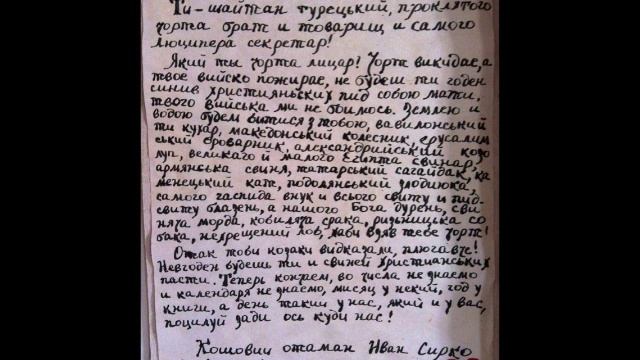 Ти - шайтан турецький, проклятого
чорта брат и товариш и самого
люципера секретар!
Який ты чорта лицар? Чорт викидає, а
твое вийско пожирає, не будеш ти годен
синив християньских пид собою мати,
твого вийська ми не боимось. Землею и
водою будем битися з тобою, вавилонський
ти кухар, македонський колесник, ерусалим
ський броварник, александрийський козо
луп, великаго й малого Египта свинар,
армянська свиня, татарський сагайдак, ка
менецький кат, подолянський злодиюка,
самого гаспида внук и всього свиту и пид-
свиту блазень, а нашого Бога дурень, сви
няча морда, кобиляча срака, ризницька со
бака, нехрещений лоб, хаби взяв тебе чорт!
Отак тоби козаки видказали, плюгавче!
Невгоден будешь ти и свиней християнських
пасти. Теперь кончаем, бо числа не знаемо
и календаря не знаемо, мисяц у неким, год у
книги, а день такий у нас, який и у вас,
поцилуй зади ось куди нас!
Кошовий отаман Иван Сирко